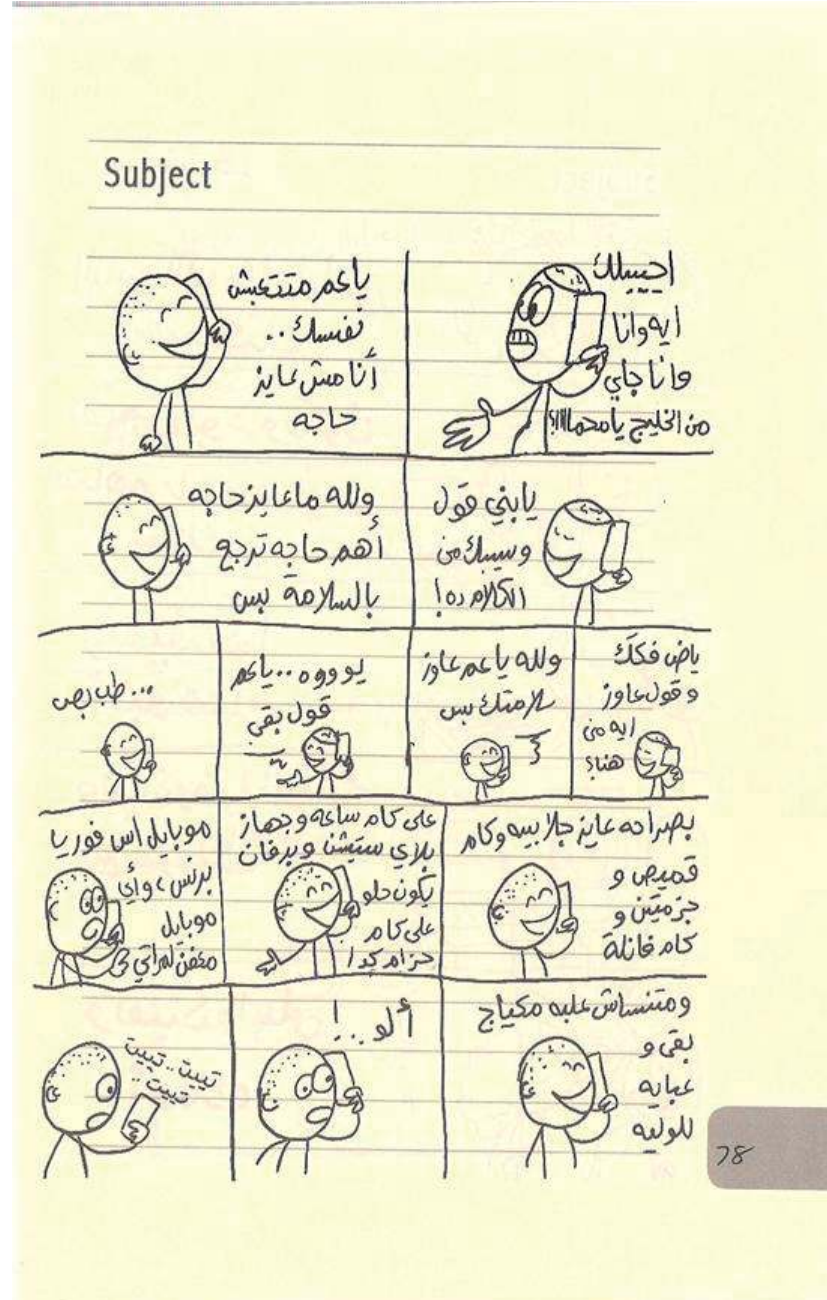 Subject
اجيبلك
ايه وانا
وانا جاي
من الخليج يا محمااا؟
يا عم متتعبش
نفسك..
أنا مش عايز
حاجه
يابني قول
وسيبك من
الكلام ده!
ولله ما عايز حاجه
أهم حاجه ترجع
بالسلامة بس
ياض فكك
وقول عاوز
ايه من
هنا؟
ولله يا عم عاوز
سلامتك بس
يوووه..ياعم
قول بقى
...طب بص
بصراحه عايز جلابيه وكام
قميص و
جزمتين و
كام فانلة
على كام ساعه وجهاز
بلاي ستيشن وبرفان
يكون حلو
على كام
حزام كدا
موبايل اس فور يا
برنس، وأي
موبايل
معفن لمراتي
ومتنساش علبه مكياج
بقى و
عبايه
للوليه
ألو..!
تييت..تييت
..تييت
78